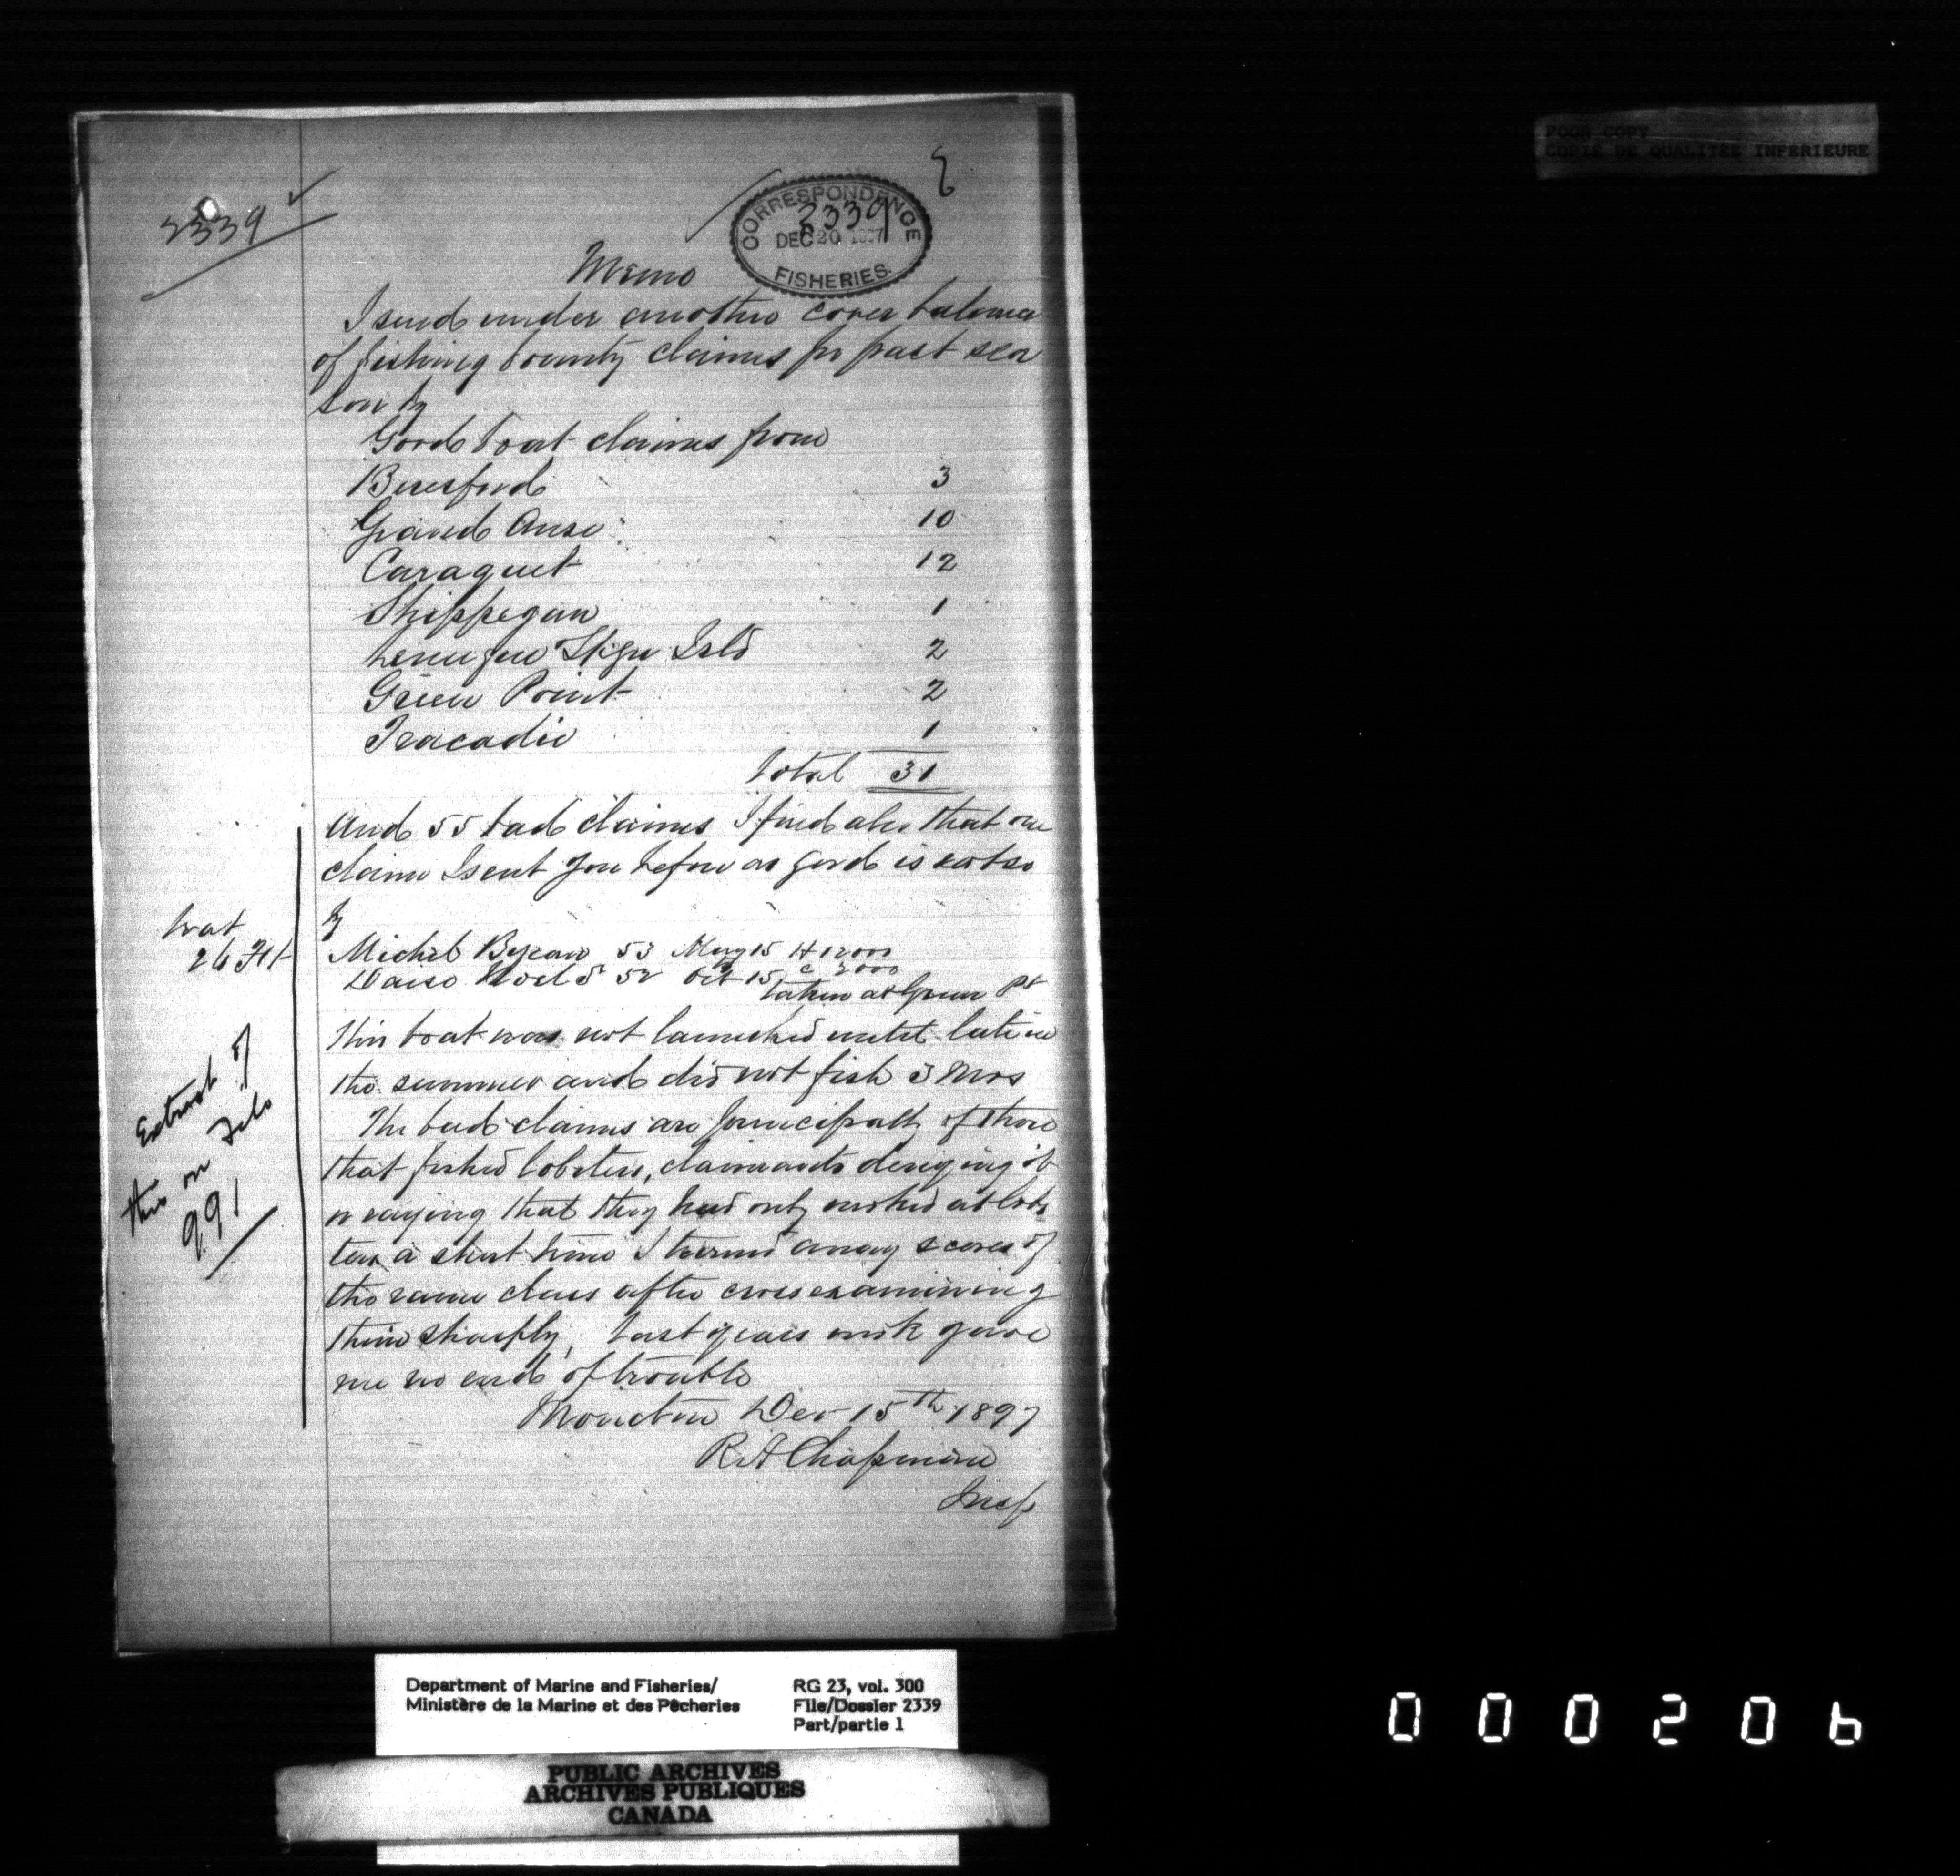 POOR COPY
COPIE DE QUALITEE INFERIEURE
2339
CORRESPONDENCE
2339
DEC 20 1897
FISHERIES.
Memo
I send under another cover balance
of fishing bounty claims for past sea
son by
Good boat claims from
Beresford 3
Grand Anse 10
Caraquet 12
Shippegan 1
Shpgn Isld 2
Green Point 2
Tracadie 1
Total 31
And 55 bad claims I find also that one
claim I sent you before as good is not so
by
boat
26 Ft
Michel 53 May 15 H 12000
Noel 5 52 Oct 15 C 2000
taken at Green Pt
This boat was not launched until late in
the summer and did not fish 3 Mos
The bad claims are principally of those
that fished lobsters, claimants denying it
or saying that they had only worked at lobs
ters a short time I turned away scores of
the same class after cross examining
them sharply, last years work gave
me no end of trouble
Extract of
this on File
991
Moncton Dec 15th 1897
R A Chapman
Insp
Department of Marine and Fisheries/
Ministère de la Marine et des Pêcheries
RG 23, vol. 300
File/Dossier 2339
Part/partie 1
PUBLIC ARCHIVES
ARCHIVES PUBLIQUES
CANADA
000206